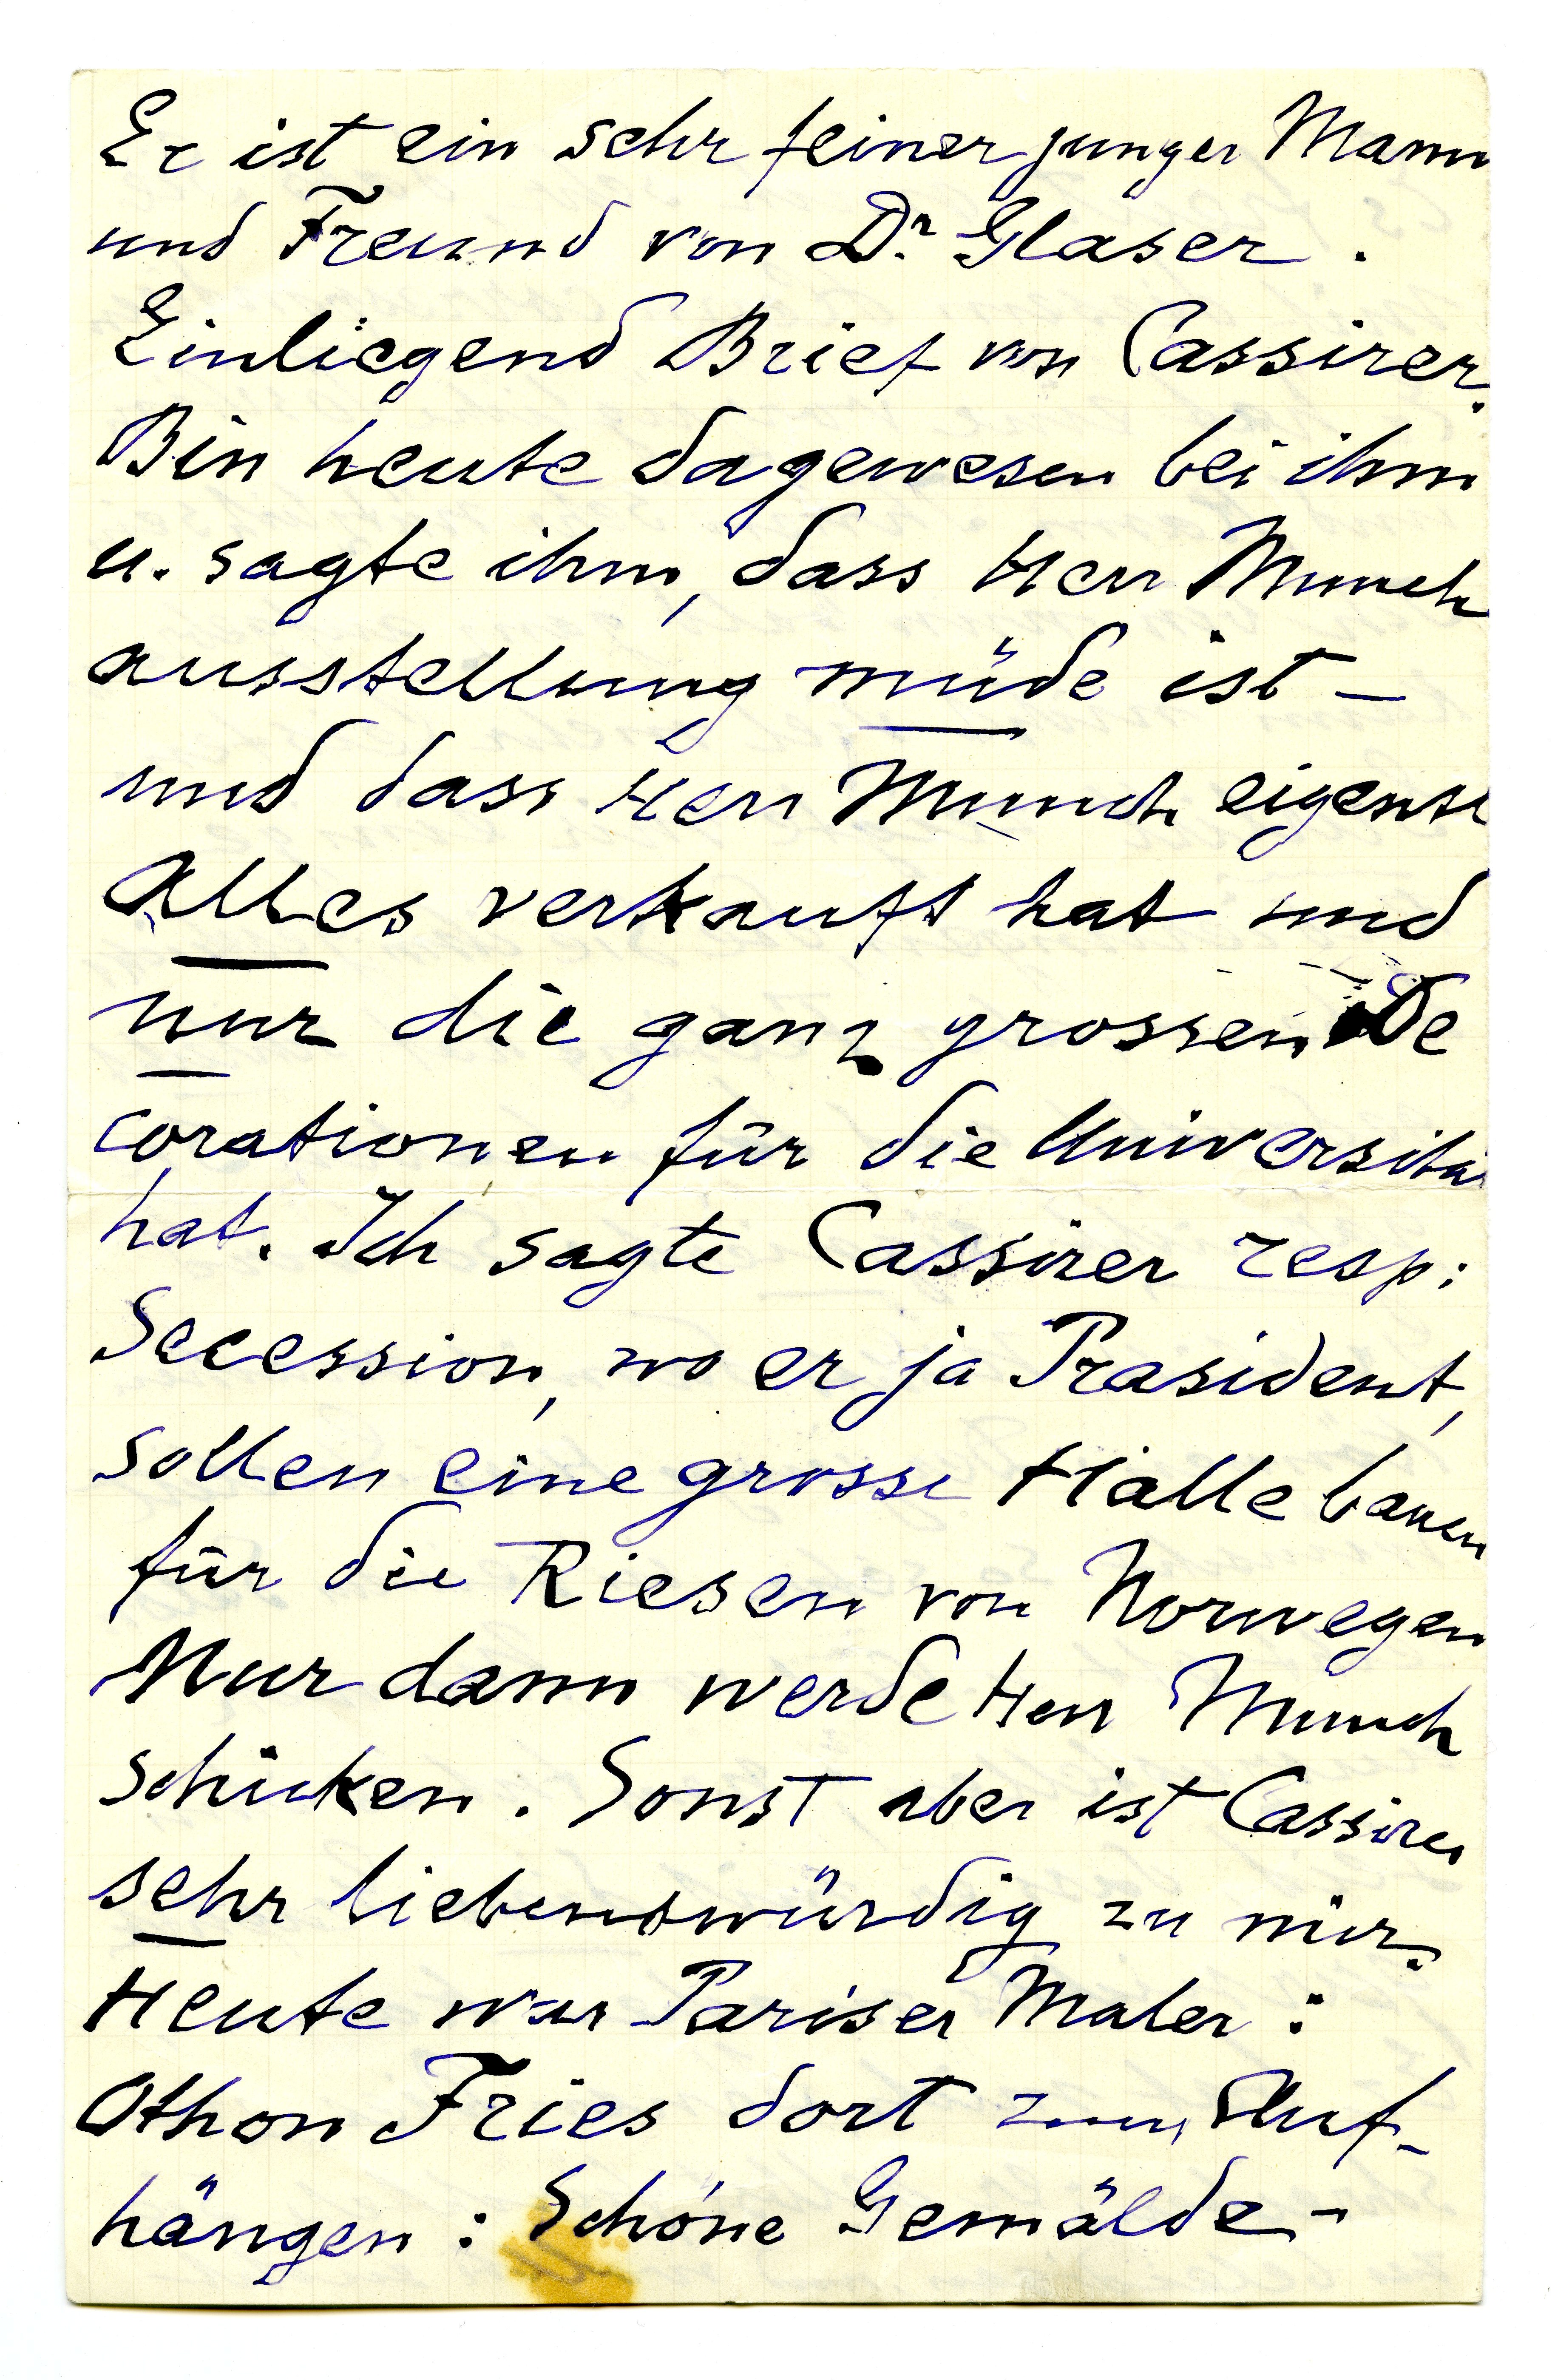 Er ist ein sehr feiner junger Mann
und Freund von Dr. Glaser.
Einliegend Brief von Cassirer.
Bin heute dagewesen bei ihm
u. sagte ihm, dass Herr Munch
ausstellung müde ist –
und dass Herr Munch eigentl
Alles verkauft hat und
nur die ganz grossen De
corationen für die Universitä
hat. Ich sagte Cassirer resp:
Secession, wo er ja Prasident,
sollen eine grosse Halle bauen
für die Riesen von Norwegen
Nur dann werde Herr Munch
schicken. Sonst aber ist Cassirer
sehr liebenswürdig zu mir.
Heute war Pariser Maler:
Othon Fries dort zum Auf-
hängen: Schöne Gemälde –